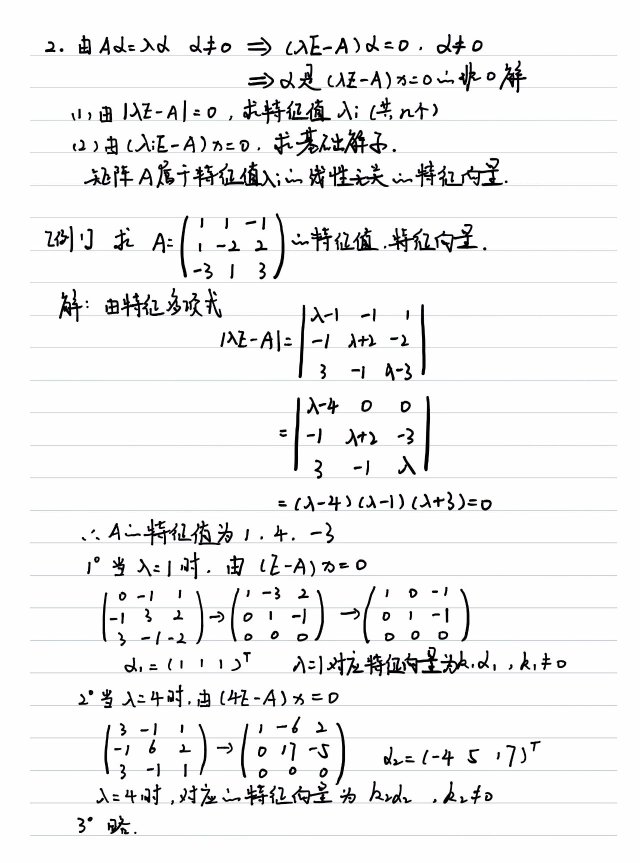 2. 由 Aα=λα α≠0 ⟹ (λE-A)α=0, α≠0
⟹ α是(λE-A)x=0的非0解
(1) 由 |λE-A|=0, 求特征值 λi (共n个)
(2) 由 (λiE-A)x=0, 求基础解系.
矩阵A属于特征值λi的线性无关的特征向量.
[例1] 求 A= ( 1 1 -1
1 -2 2
-3 1 3 ) 的特征值,特征向量.
解: 由特征多项式
|λE-A|= | λ-1 -1 1
-1 λ+2 -2
3 -1 λ-3 |
= | λ-4 0 0
-1 λ+2 -3
3 -1 λ |
= (λ-4)(λ-1)(λ+3)=0
∴ A的特征值为 1, 4, -3
1° 当 λ=1 时, 由 (E-A)x=0
( 0 -1 1 → ( 1 -3 2 → ( 1 0 -1
-1 3 2 0 1 -1 0 1 -1
3 -1 -2 ) 0 0 0 ) 0 0 0 )
α₁=(1 1 1)ᵀ λ=1对应特征向量为k₁α₁, k₁≠0
2° 当 λ=4 时, 由 (4E-A)x=0
( 3 -1 1 → ( 1 -6 2
-1 6 2 0 17 -5 α₂=(-4 5 17)ᵀ
3 -1 1 ) 0 0 0 )
λ=4 时, 对应的特征向量为 k₂α₂, k₂≠0
3° 略.